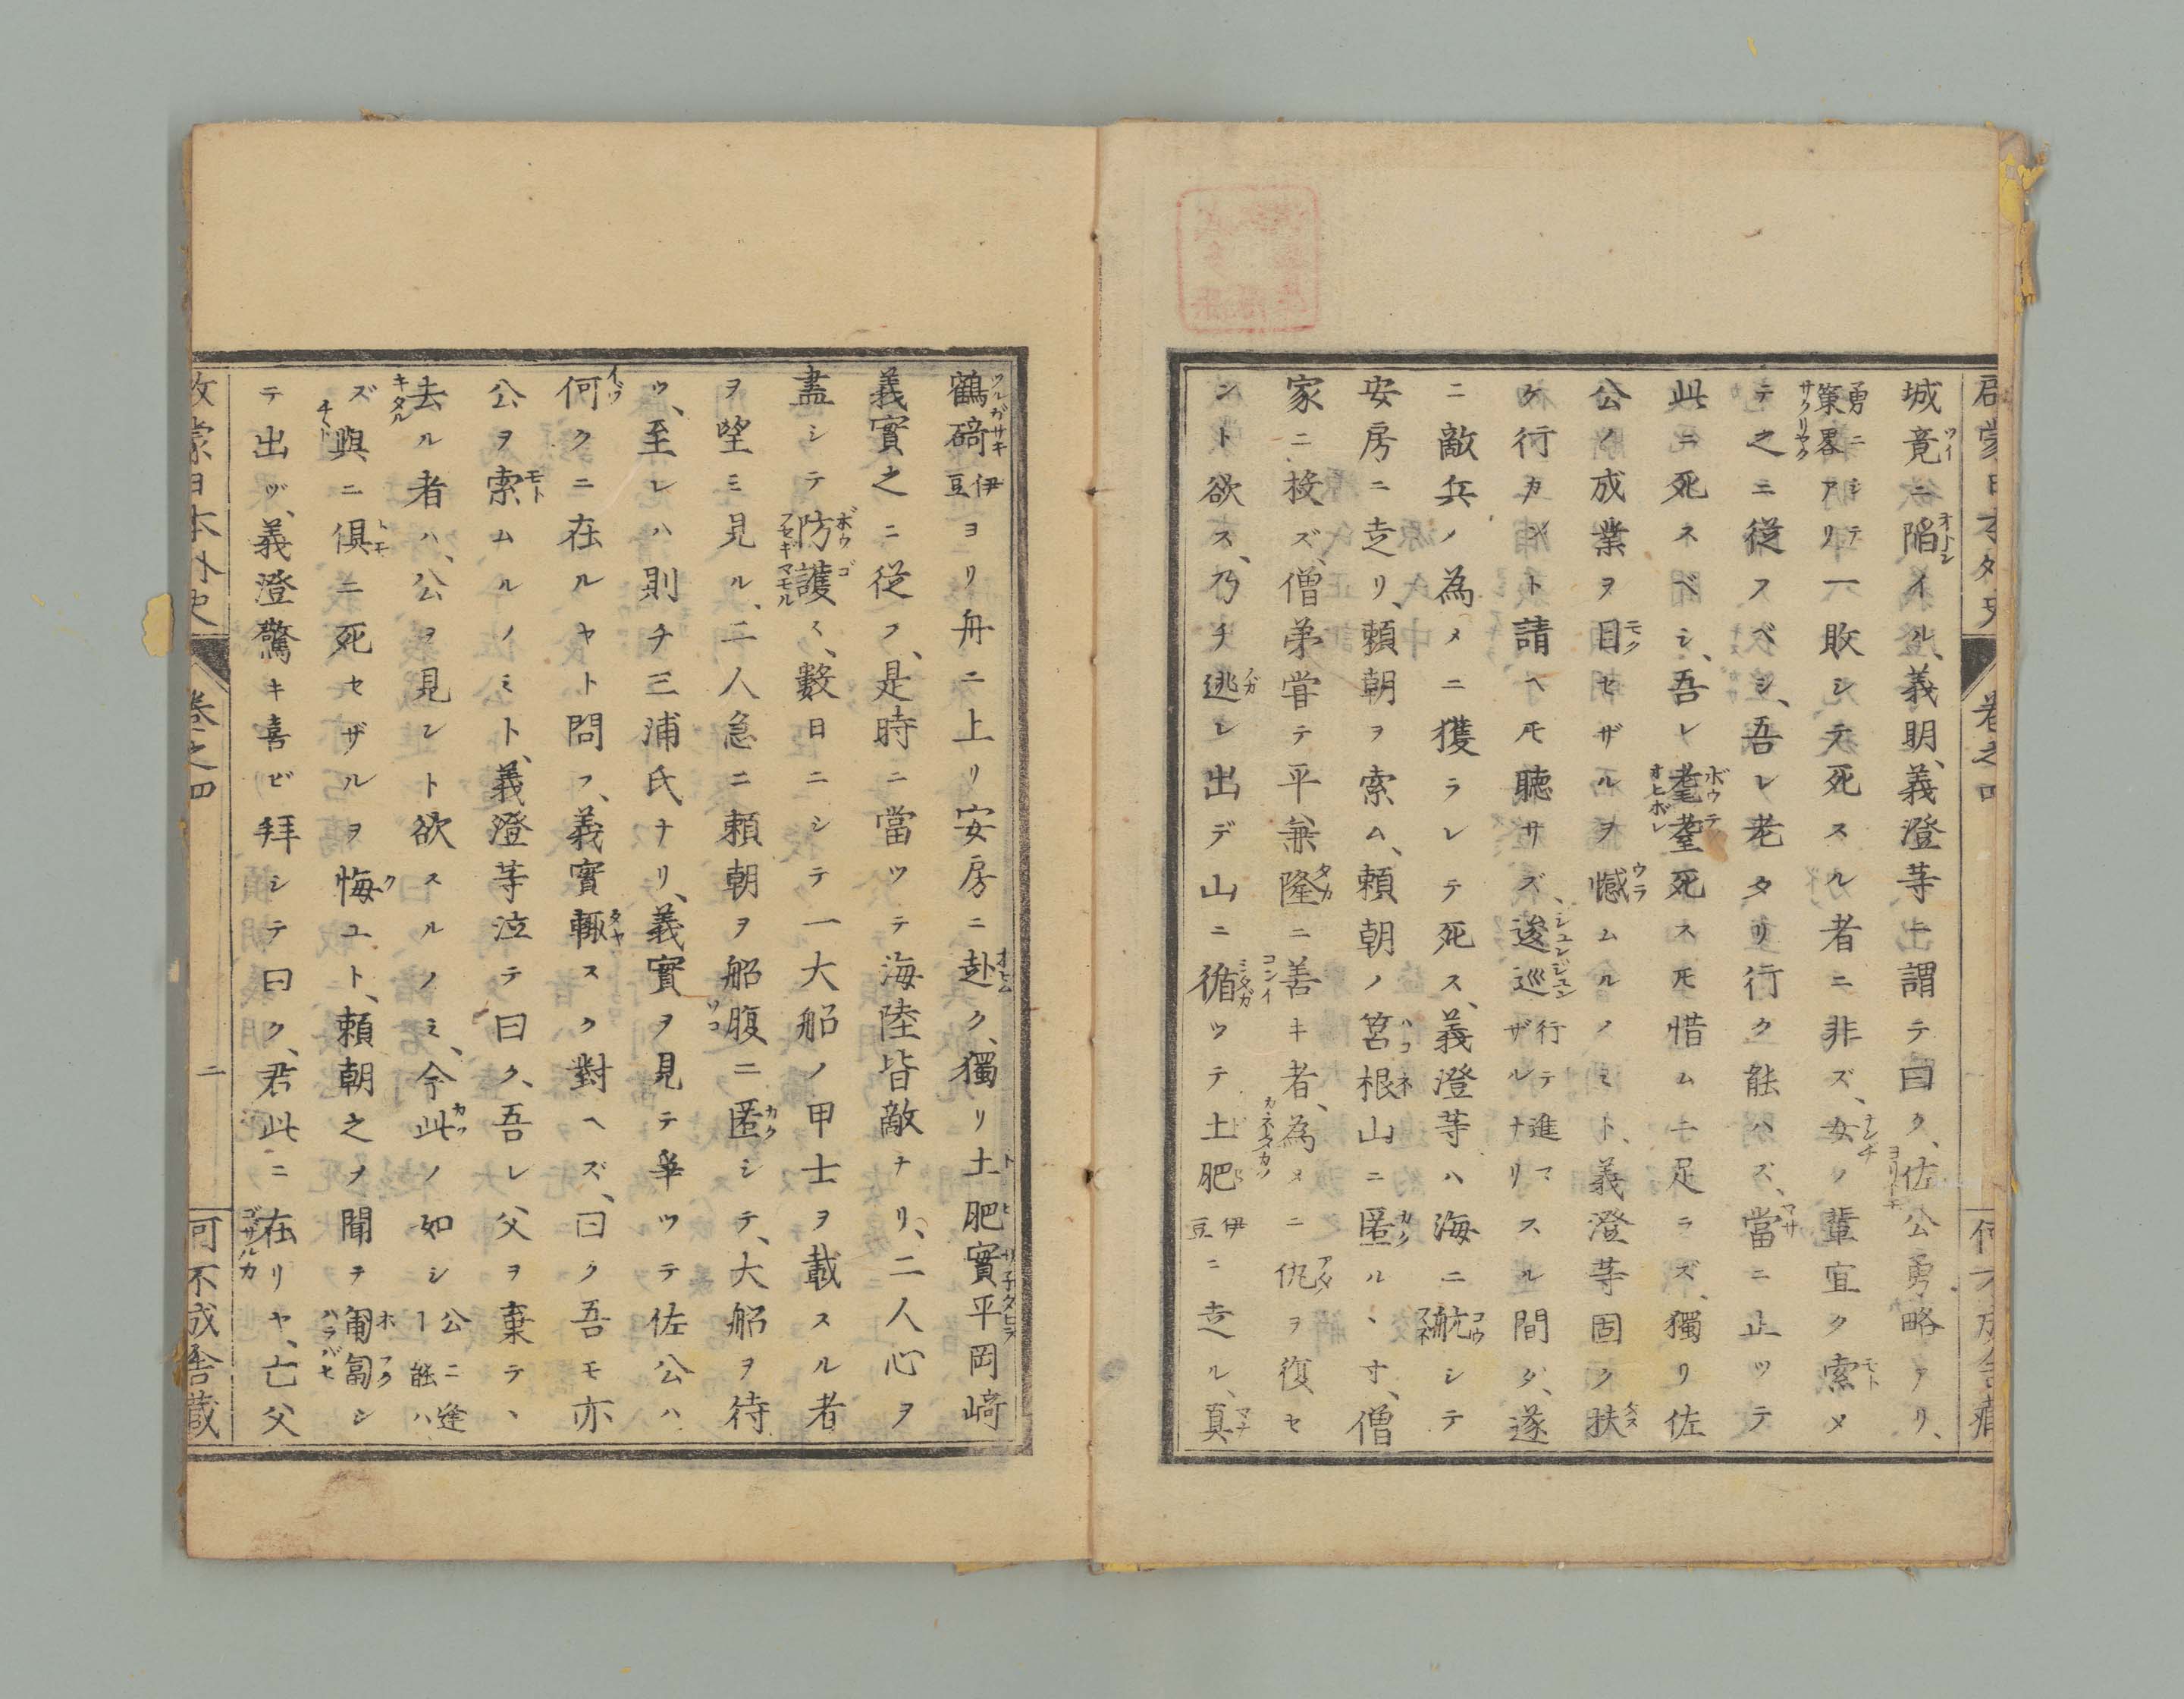 城竟ニ陷イル、義明、義澄等ニ謂テ曰ク、佐公勇略アリ、
勇ニシテ策畧アリ一敗シテ死スル者ニ非ズ、女ノ輩宜ク索メ
テ之ニ従フベシ、吾レ老タリ行ク能ハズ、當ニ止ツテ
此ニ死ネベシ、吾レ耄耋死スモ惜ムニ足ラズ、獨リ佐
公ノ成業ヲ目セザルヲ憾ムルノミト、義澄等固ク扶
ク行カント請ヘモ聴サズ、逡巡行テ進マザルナリスル間ダ、遂
ニ敵兵ノ為メニ獲ラレテ死ス、義澄等ハ海ニ航シテ
安房ニ走リ、頼朝ヲ索ム、頼朝ノ筥根山ニ匿ルヽヤ、僧
家ニ投ズ、僧弟甞テ平兼隆ニ善キ者、為メニ仇ヲ復セ
ント欲ス、乃チ逃レ出デ山ニ循ツテ土肥伊豆ニ走ル、真
鶴﨑伊豆ヨリ舟ニ上リ安房ニ赴ク、獨リ土肥實平岡﨑
義實之ニ従フ、是時ニ當ツテ海陸皆敵ナリ、二人心ヲ
盡シテ防護ス、數日ニシテ一大船ノ甲士ヲ載スル者
ヲ望ミ見ル、二人急ニ頼朝ヲ船腹ニ匿シテ、大船ヲ待
ツ、至レハ則チ三浦氏ナリ、義實ヲ見テ爭ツテ佐公ハ
何クニ在ルヤト問フ、義實輙スク對ヘズ、曰ク吾モ亦
公ヲ索ムルノミト、義澄等泣テ曰ク、吾レ父ヲ棄テヽ
去ル者ハ、公ヲ見ント欲スルノミ、今此ノ如シ公ニ逢ー能ハ
ズ與ニ俱ニ死セザルヲ悔ユト、頼朝之ヲ聞テ匍匐シ
テ出ヅ、義澄驚キ喜ビ拜シテ曰ク、君此ニ在リヤ、亡父
啓蒙日本外史 卷之四 二 何不成舎蔵